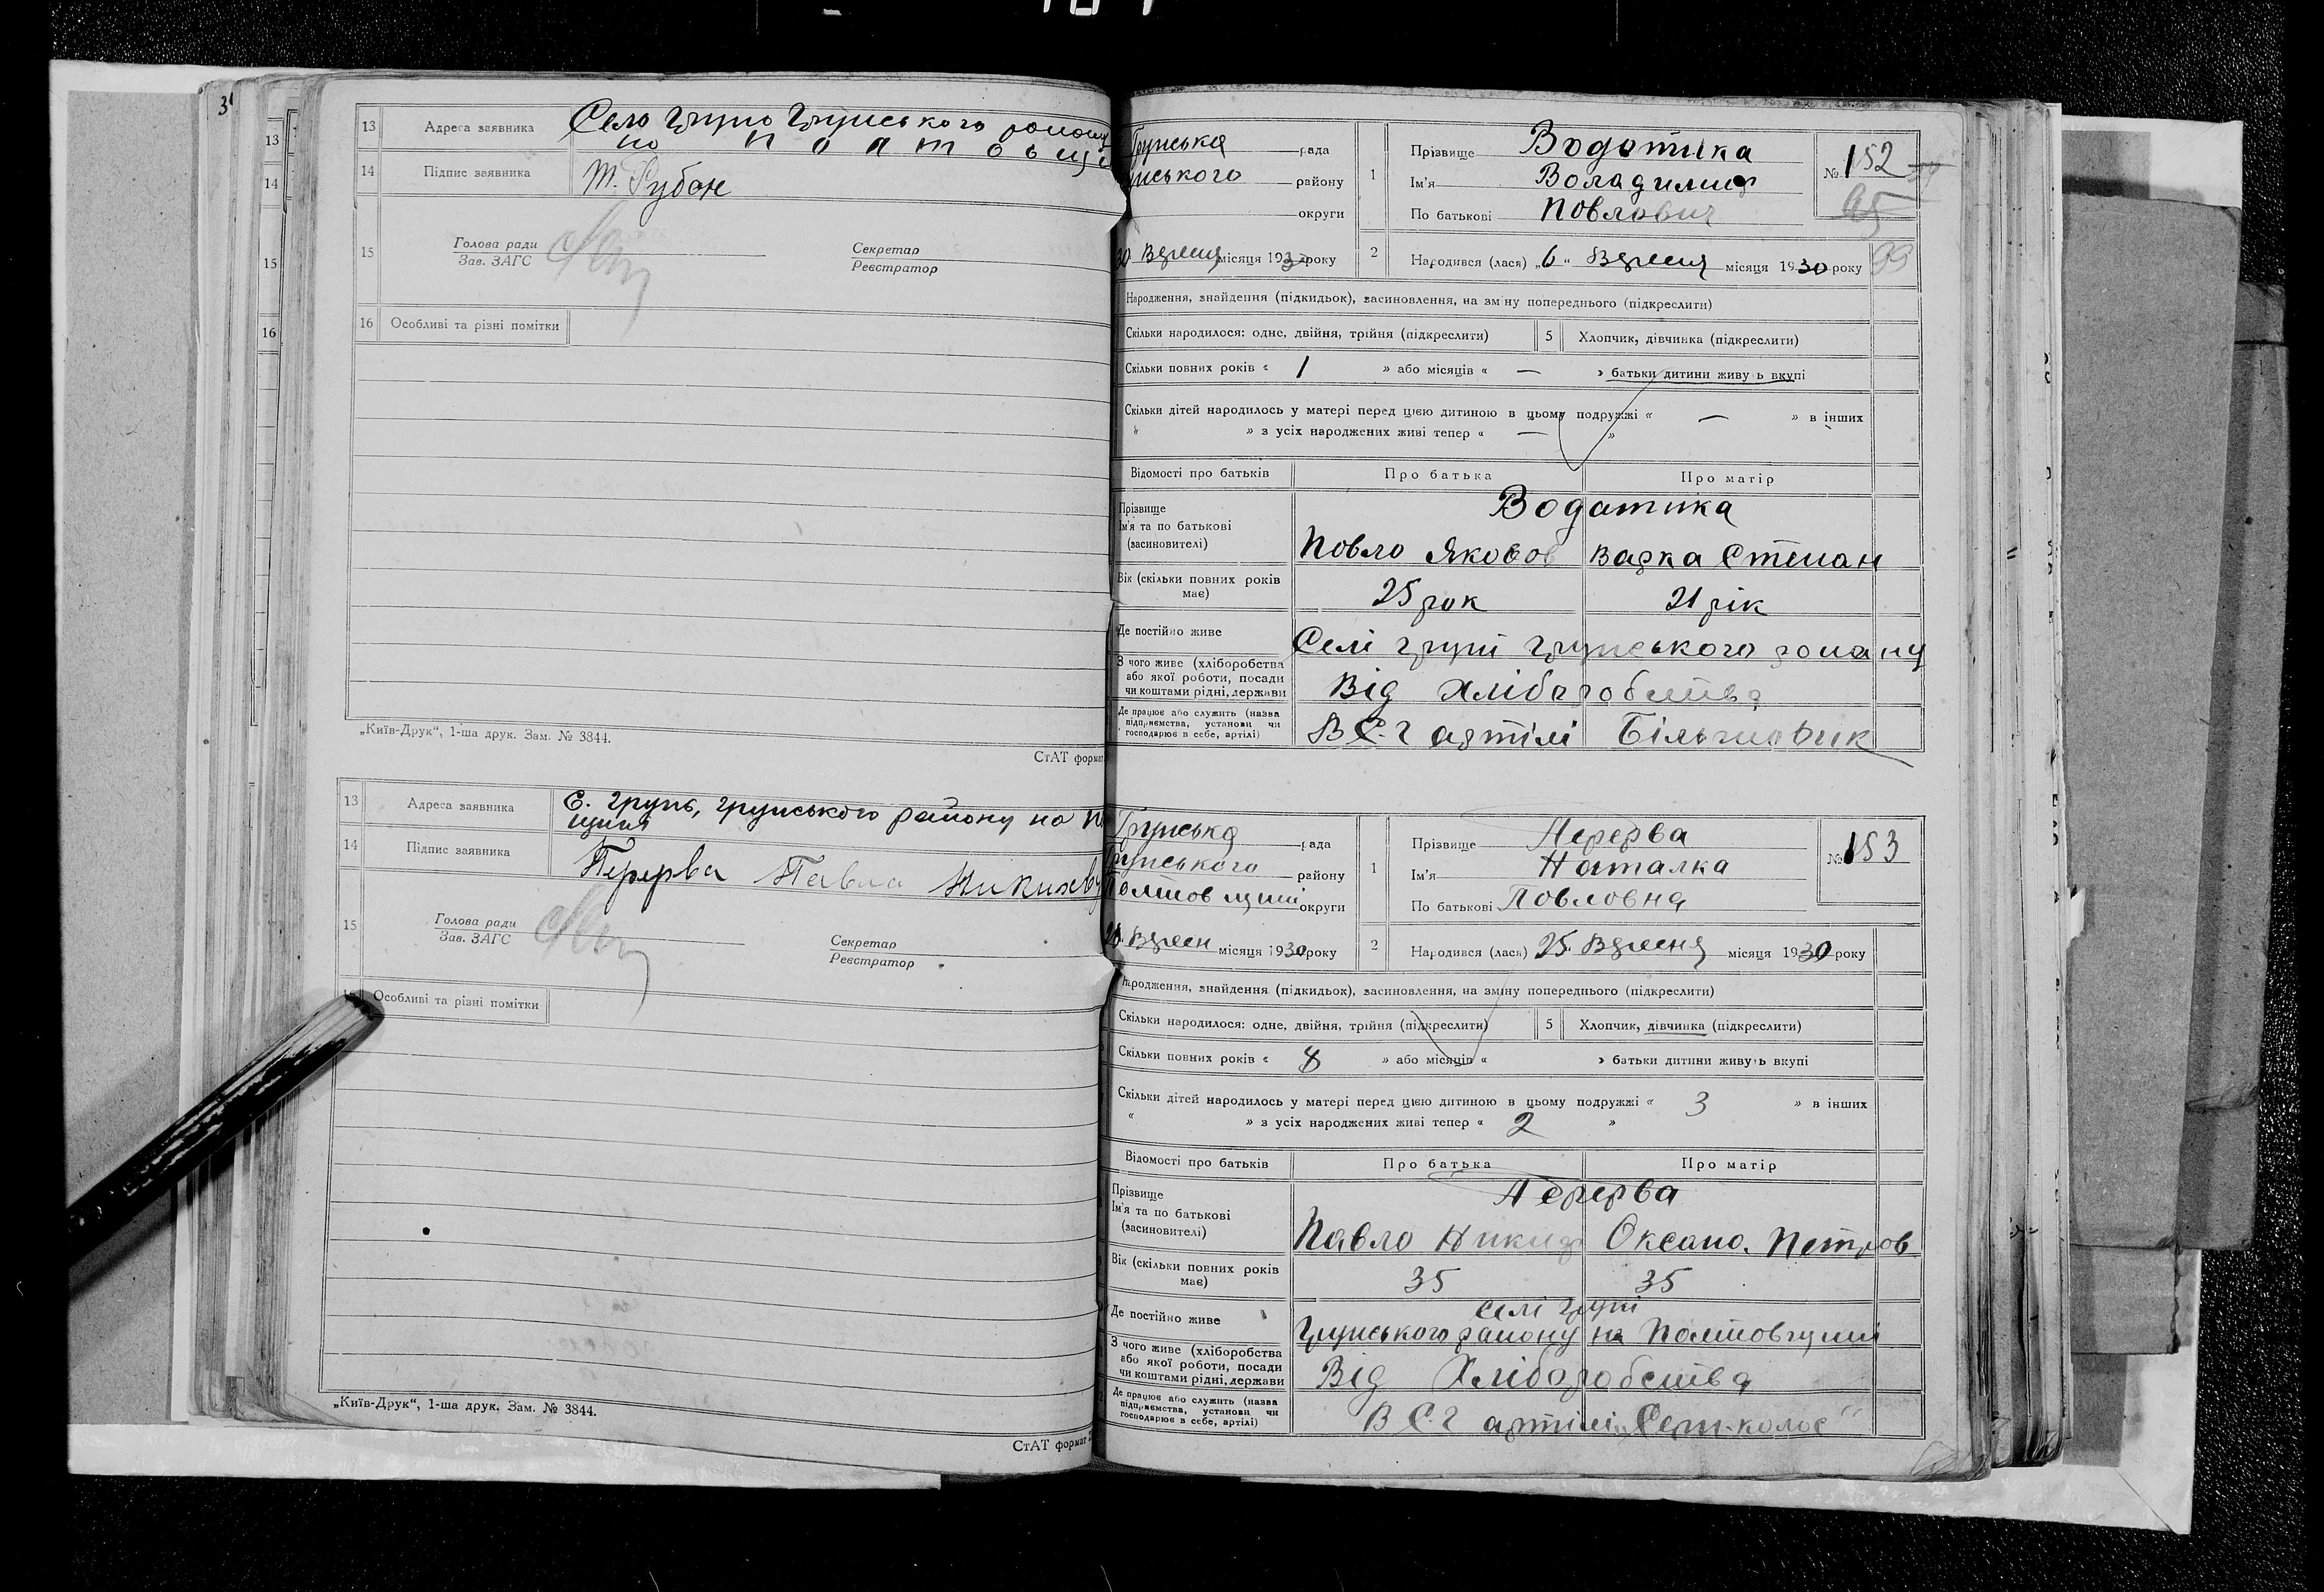 13 Адреса заявника Село Грунь Грунського району
на Полтовщи
14 Підпис заявника Т. Рубан
15 Голова ради
Зав. ЗАГС
Секретар
Реєстратор
16 Особливі та різні помітки
„Київ-Друк“, 1-ша друк. Зам. № 3844.
СтАТ формат
13 Адреса заявника С. Грунь, Грунського району на
щині
14 Підпис заявника Перерва Павла
15 Голова ради
Зав. ЗАГС
Секретар
Реєстратор
Особливі та різні помітки
„Київ-Друк“, 1-ша друк. Зам. № 3844.
СтАТ формат
Грунська рада
унського району
округи
30 Вересня місяця 1930 року
1 Прізвище Водотика
Ім'я Воладимир
По батькові Повлович
№ 152
95
99
2 Народився (лася) „6“ Вересня місяця 1930 року
Народження, знайдення (підкидьок), засиновлення, на зміну попереднього (підкреслити)
Скільки народилося: одне, двійня, трійня (підкреслити) 5 Хлопчик, дівчинка (підкреслити)
Скільки повних років « 1 » або місяців « — » батьки дитини живуть вкупі
Скільки дітей народилось у матері перед цією дитиною в цьому подружжі « — » в інших
« » з усіх народжених живі тепер « — »
Відомості про батьків Про батька Про матір
Прізвище Водатика
Ім'я та по батькові
(засиновителі) Повло Яковов Варка Степан
Вік (скільки повних років
має) 25 рок 21 рік
Де постійно живе Селі Груні Грунського рому
З чого живе (хліборобства
або якої роботи, посади
чи коштами рідні, держави Від Хліборобства
Де працює або служить (назва
підприємства, установи чи
господарює в себе, артілі) В С.Г артілі Більшовик
Грунська рада
Грунського району
Полтовщині округи
Вересн місяця 1930 року
1 Прізвище Перерва
Ім'я Наталка
По батькові Повловна
№ 153
2 Народився (лася) „25“ Вересня місяця 1930 року
Народження, знайдення (підкидьок), засиновлення, на зміну попереднього (підкреслити)
Скільки народилося: одне, двійня, трійня (підкреслити) 5 Хлопчик, дівчинка (підкреслити)
Скільки повних років « 8 » або місяців « » батьки дитини живуть вкупі
Скільки дітей народилось у матері перед цією дитиною в цьому подружжі « 3 » в інших
« » з усіх народжених живі тепер « 2 »
Відомості про батьків Про батька Про матір
Прізвище Перерва
Ім'я та по батькові
(засиновителі) Павло Никиф Оксано. Петров
Вік (скільки повних років
має) 35 35
Де постійно живе Селі Груні
Грунського району на Полтовщині
З чого живе (хліборобства
або якої роботи, посади
чи коштами рідні, держави Від Хліборобства
Де працює або служить (назва
підприємства, установи чи
господарює в себе, артілі) В С.Г артілі